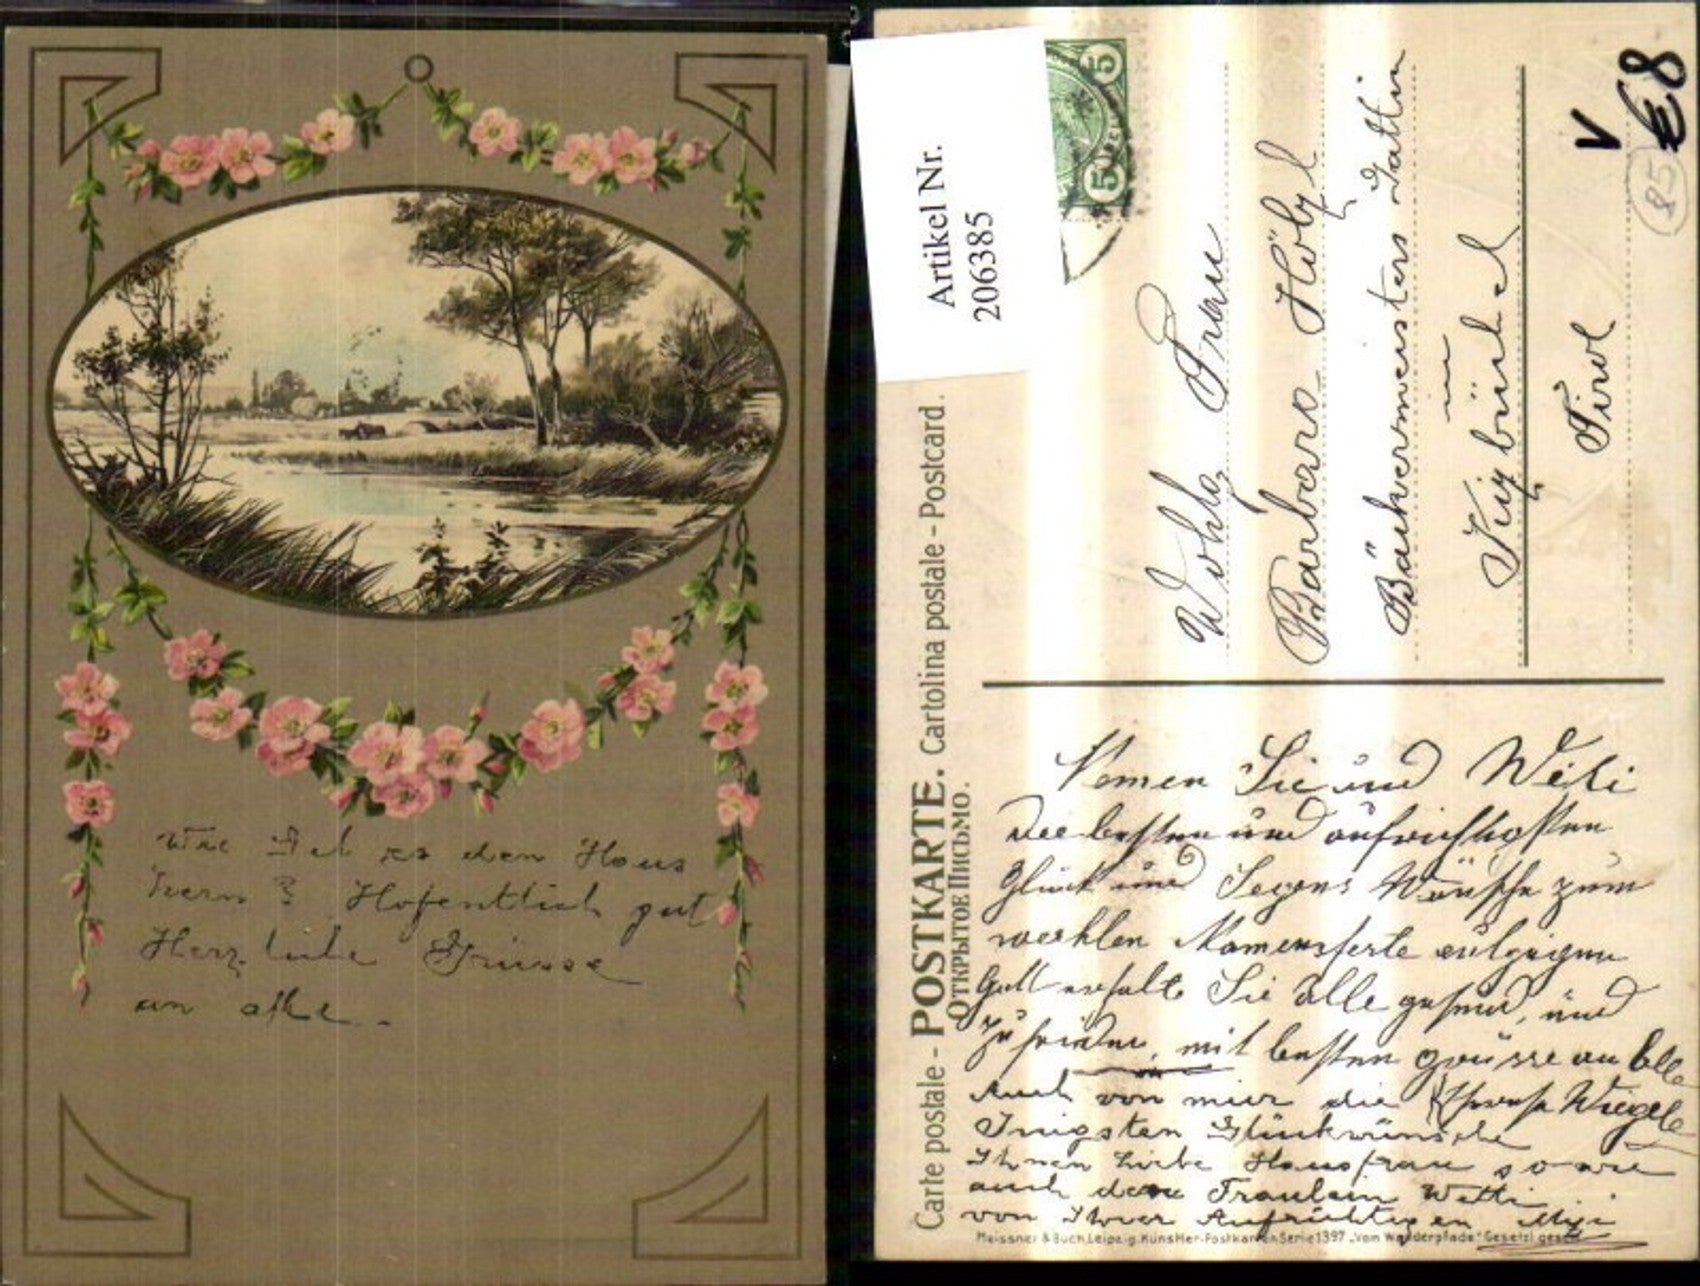 Wie Get es den Haus
herrn ? Hofentlich gut
Herz liche Grüsse
an alle.
Artikel Nr.
206385
5
5
V
€8
85
Wohlg Frau
Barbara Hölzl
Bäckermeisters Gattin
in
Kizbühel
Tirol
Carte postale - POSTKARTE. Cartolina postale - Postcard.
Открытое Письмо.
Nemen Sie und Weti
die besten und aufrichtigsten
Glück und Segens Wünsche zum
werthen Namensfeste entgegen
Gott erhalte Sie Alle gesund, und
zufrieden, mit besten grüsse an Alle
Auch von mir die Theresa
Inigsten Glückwünsche
Ihnen Liebe Hausfrau so wie
auch dem Fraulein Wetti
von Ihrer Aufrichtigen Mizi
Meissner & Buch, Leipzig. Künstler-Postkarten Serie 1397 „Vom Wanderpfade" Gesetzl gesch